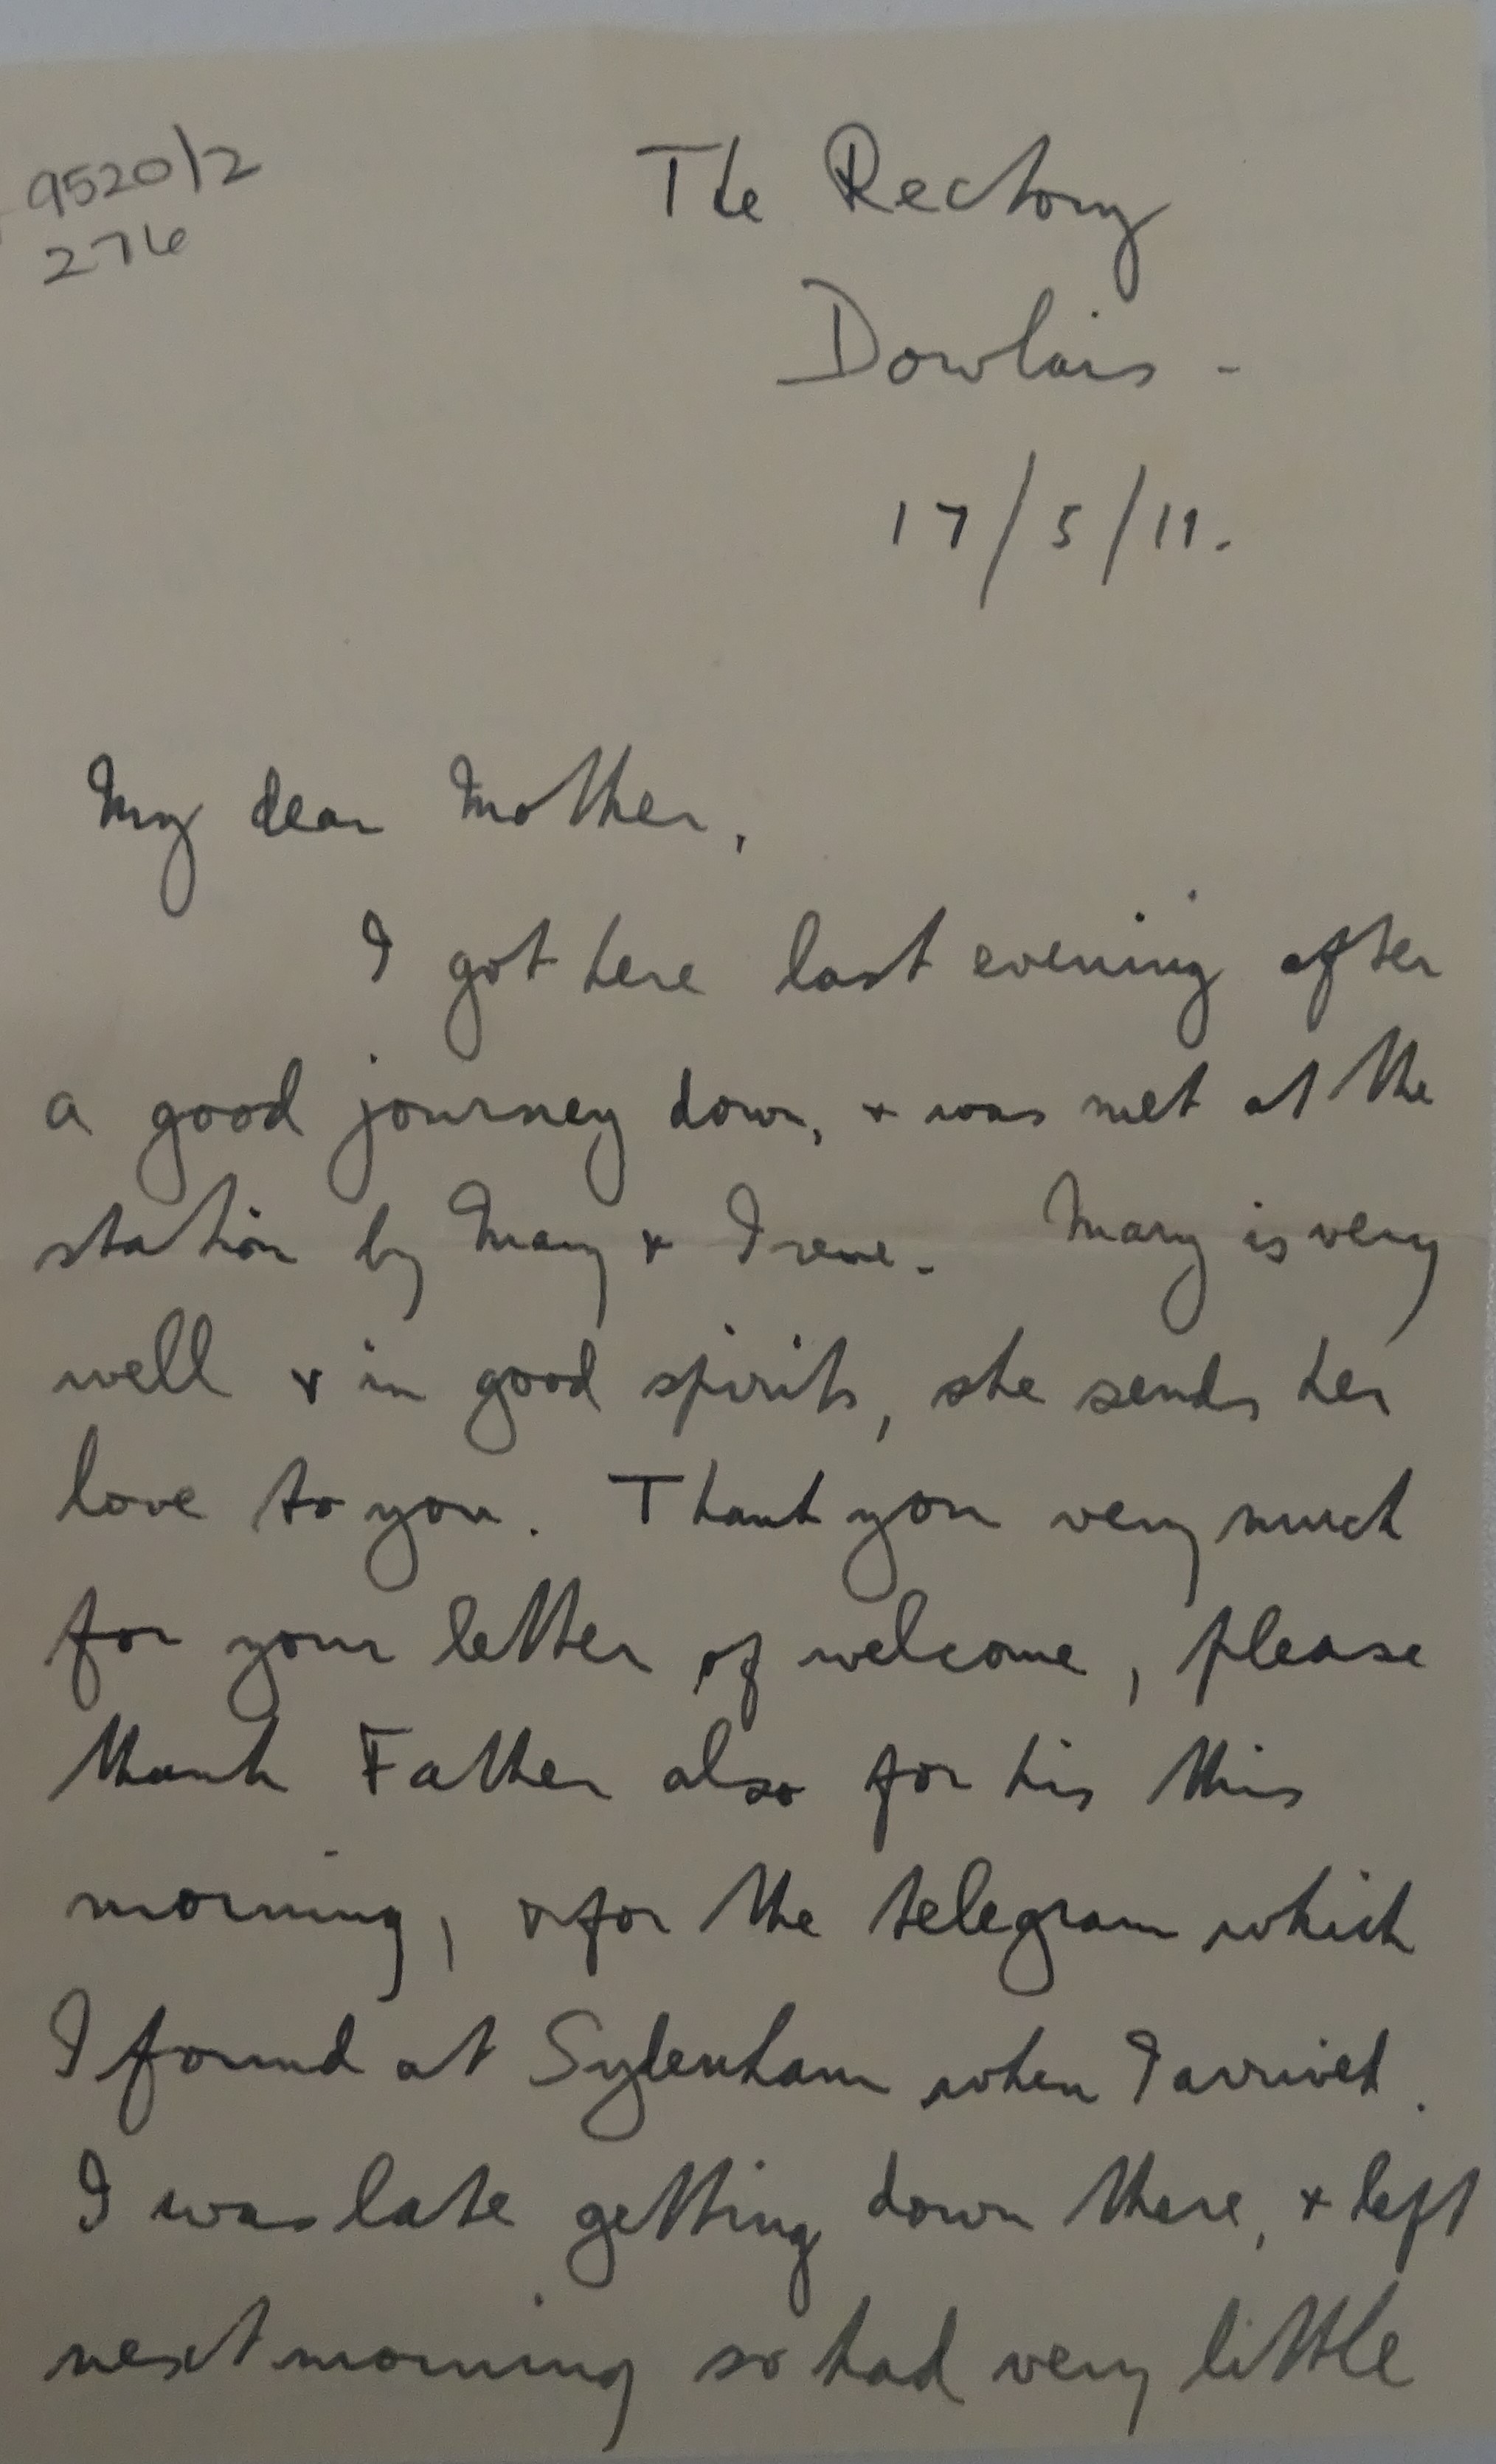 9520/2
276
The Rectory
Dowlais -
17/5/19.
My dear Mother,
I got here last evening after
a good journey down, & was met at the
station by Mary & Irene. Mary is very
well & in good spirits, she sends her
love to you. Thank you very much
for your letter of welcome, please
thank Father also for his this
morning, & for the telegram which
I found at Sydenham when I arrived.
I was late getting down there, & left
next morning so had very little